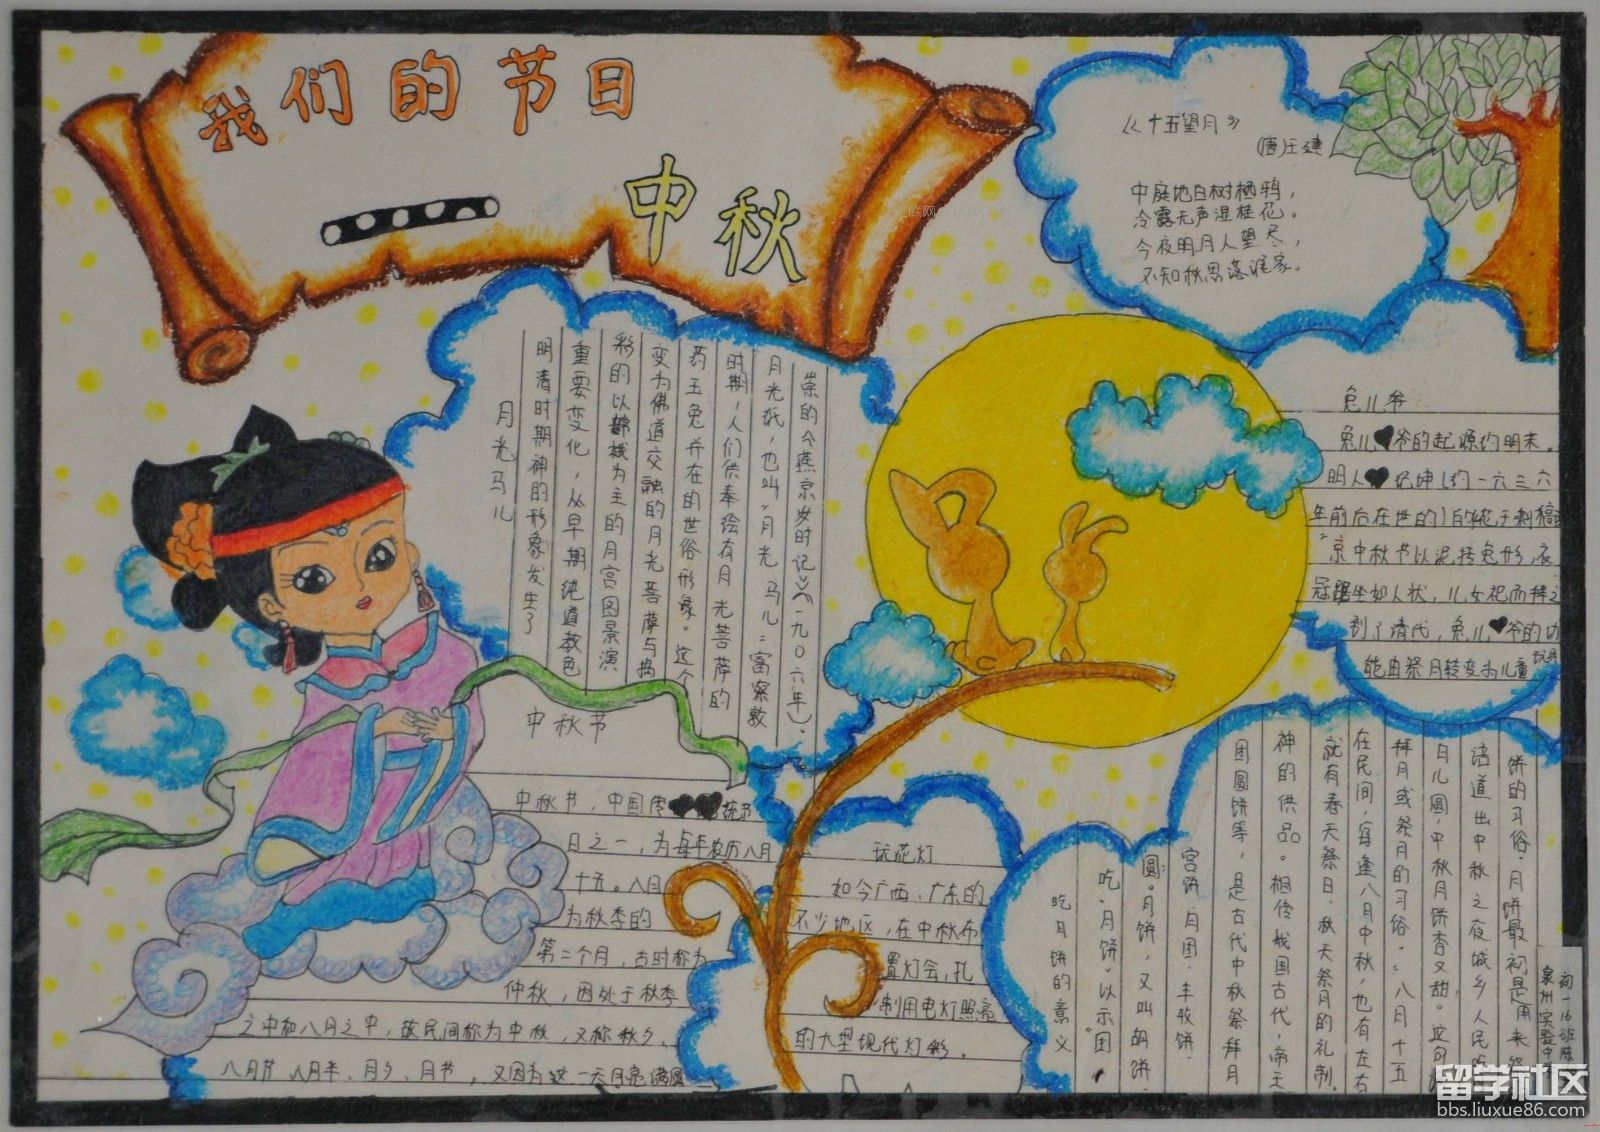 我们的节日
中秋
《十五望月》
(唐)王建
中庭地白树栖鸦，
冷露无声湿桂花。
今夜明月人望尽，
不知秋思落谁家。
月光马儿
明清时期神的形象发生了
重要变化，从早期纯道教色
彩的以嫦娥为主的月宫图景演
变为佛道交融的月光菩萨与捣
药玉兔并在的世俗形象。这个
时期，人们供奉绘有月光菩萨的
月光纸，也叫“月光马儿”富察敦
崇的《燕京岁时记》（一九〇六年）。
兔儿爷
兔儿爷的起源约明末。
明人纪坤（约一六三六
年前后在世的）的
京中秋节以泥抟兔形，衣
冠踞坐如人状，儿女祀而拜之
到了清代，兔儿爷的功
能由祭月转变为儿童
玩具
中秋节
中秋节，中国传统节
日之一，为每年农历八月
十五。八月
为秋季的
第二个月，古时称为
仲秋，因处于秋季
之中和八月之中，故民间称为中秋，又称秋夕、
八月节、八月半、月夕、月节，又因为这一天月亮满圆
玩花灯
如今广西、广东的
不少地区，在中秋布
置灯会，扎
制用电灯照亮
的大型现代灯彩。
吃月饼的意义
吃“月饼”以示“团
圆”。月饼，又叫胡饼、
宫饼、月团、丰收饼、
团圆饼等，是古代中秋祭拜月
神的供品。相传我国古代，帝王
就有春天祭日、秋天祭月的礼制。
在民间，每逢八月中秋，也有左右
拜月或祭月的习俗。“八月十五
月儿圆，中秋月饼香又甜。”这句
话道出中秋之夜城乡人民吃
饼的习俗。月饼最初是用来祭
初一16班陈
泉州实验中
留学社区
bbs.liuxue86.com